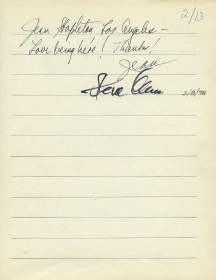 2/13
Jean Stapleton Los Angeles –
Love being here! Thanks!
Jean
2/13/78